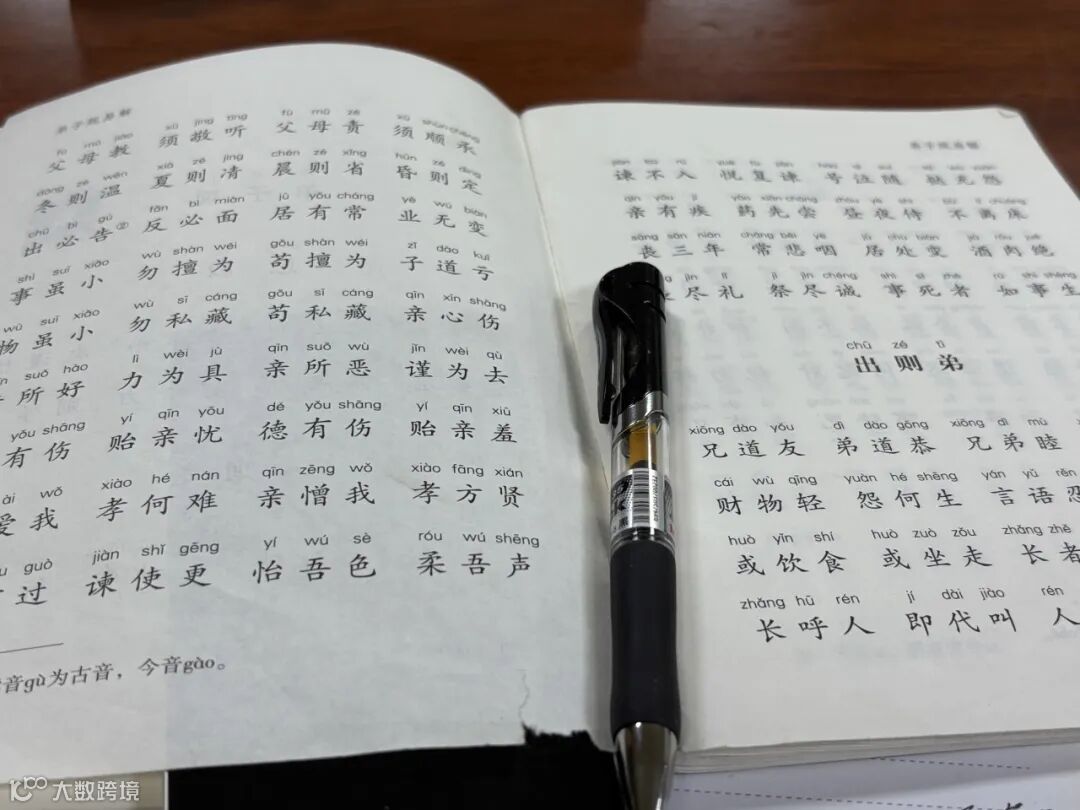 弟子规易解
fù mǔ jiào xū jìng tīng fù mǔ zé xū shùn chéng
父母教 须敬听 父母责 须顺承
dōng zé wēn xià zé jìng chén zé xǐng hūn zé dìng
冬则温 夏则清 晨则省 昏则定
chū bì gù fǎn bì miàn jū yǒu cháng yè wú biàn
出必告② 反必面 居有常 业无变
shì suī xiǎo wù shàn wéi gǒu shàn wéi zǐ dào kuī
事虽小 勿擅为 苟擅为 子道亏
wù suī xiǎo wù sī cáng gǒu sī cáng qīn xīn shāng
物虽小 勿私藏 苟私藏 亲心伤
suǒ hào lì wèi jù qīn suǒ wù jǐn wèi qù
所好 力为具 亲所恶 谨为去
yǒu shāng yí qīn yōu dé yǒu shāng yí qīn xiū
有伤 贻亲忧 德有伤 贻亲羞
ài wǒ xiào hé nán qīn zēng wǒ xiào fāng xián
爱我 孝何难 亲憎我 孝方贤
guò jiàn shǐ gēng yí wú sè róu wú shēng
过 谏使更 怡吾色 柔吾声
音gù为古音，今音gào。
弟子规易解
谏不入 悦复谏 号泣随 挞无怨
qīn yǒu jí yào xiān cháng zhòu yè shì bù lí chuáng
亲有疾 药先尝 昼夜侍 不离床
sāng sān nián cháng bēi yè jū chù biàn jiǔ ròu jué
丧三年 常悲咽 居处变 酒肉绝
jìn lǐ jì jìn chéng shì sǐ zhě rú shì shēng
尽礼 祭尽诚 事死者 如事生
chū zé tì
出则弟
xiōng dào yǒu dì dào gōng xiōng dì mù
兄道友 弟道恭 兄弟睦
cái wù qīng yuàn hé shēng yán yǔ rěn
财物轻 怨何生 言语忍
huò yǐn shí huò zuò zǒu zhǎng zhě
或饮食 或坐走 长者
zhǎng hū rén jí dài jiào rén
长呼人 即代叫 人
大数跨境